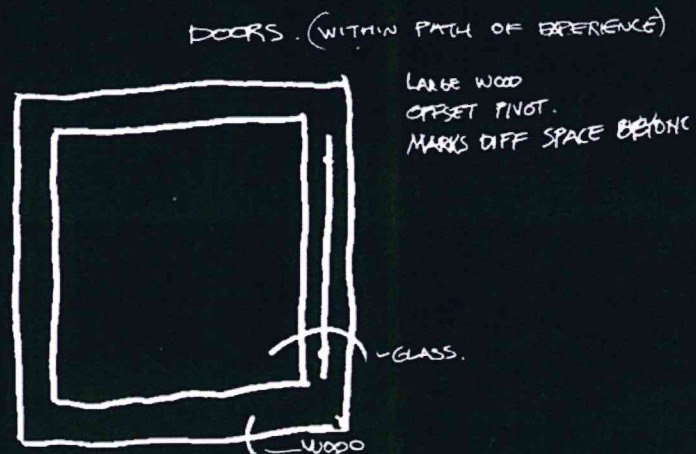 DOORS. (WITHIN PATH OF EXPERIENCE)
LARGE WOOD
OFFSET PIVOT.
MARKS DIFF SPACE BEYOND
GLASS.
WOOD